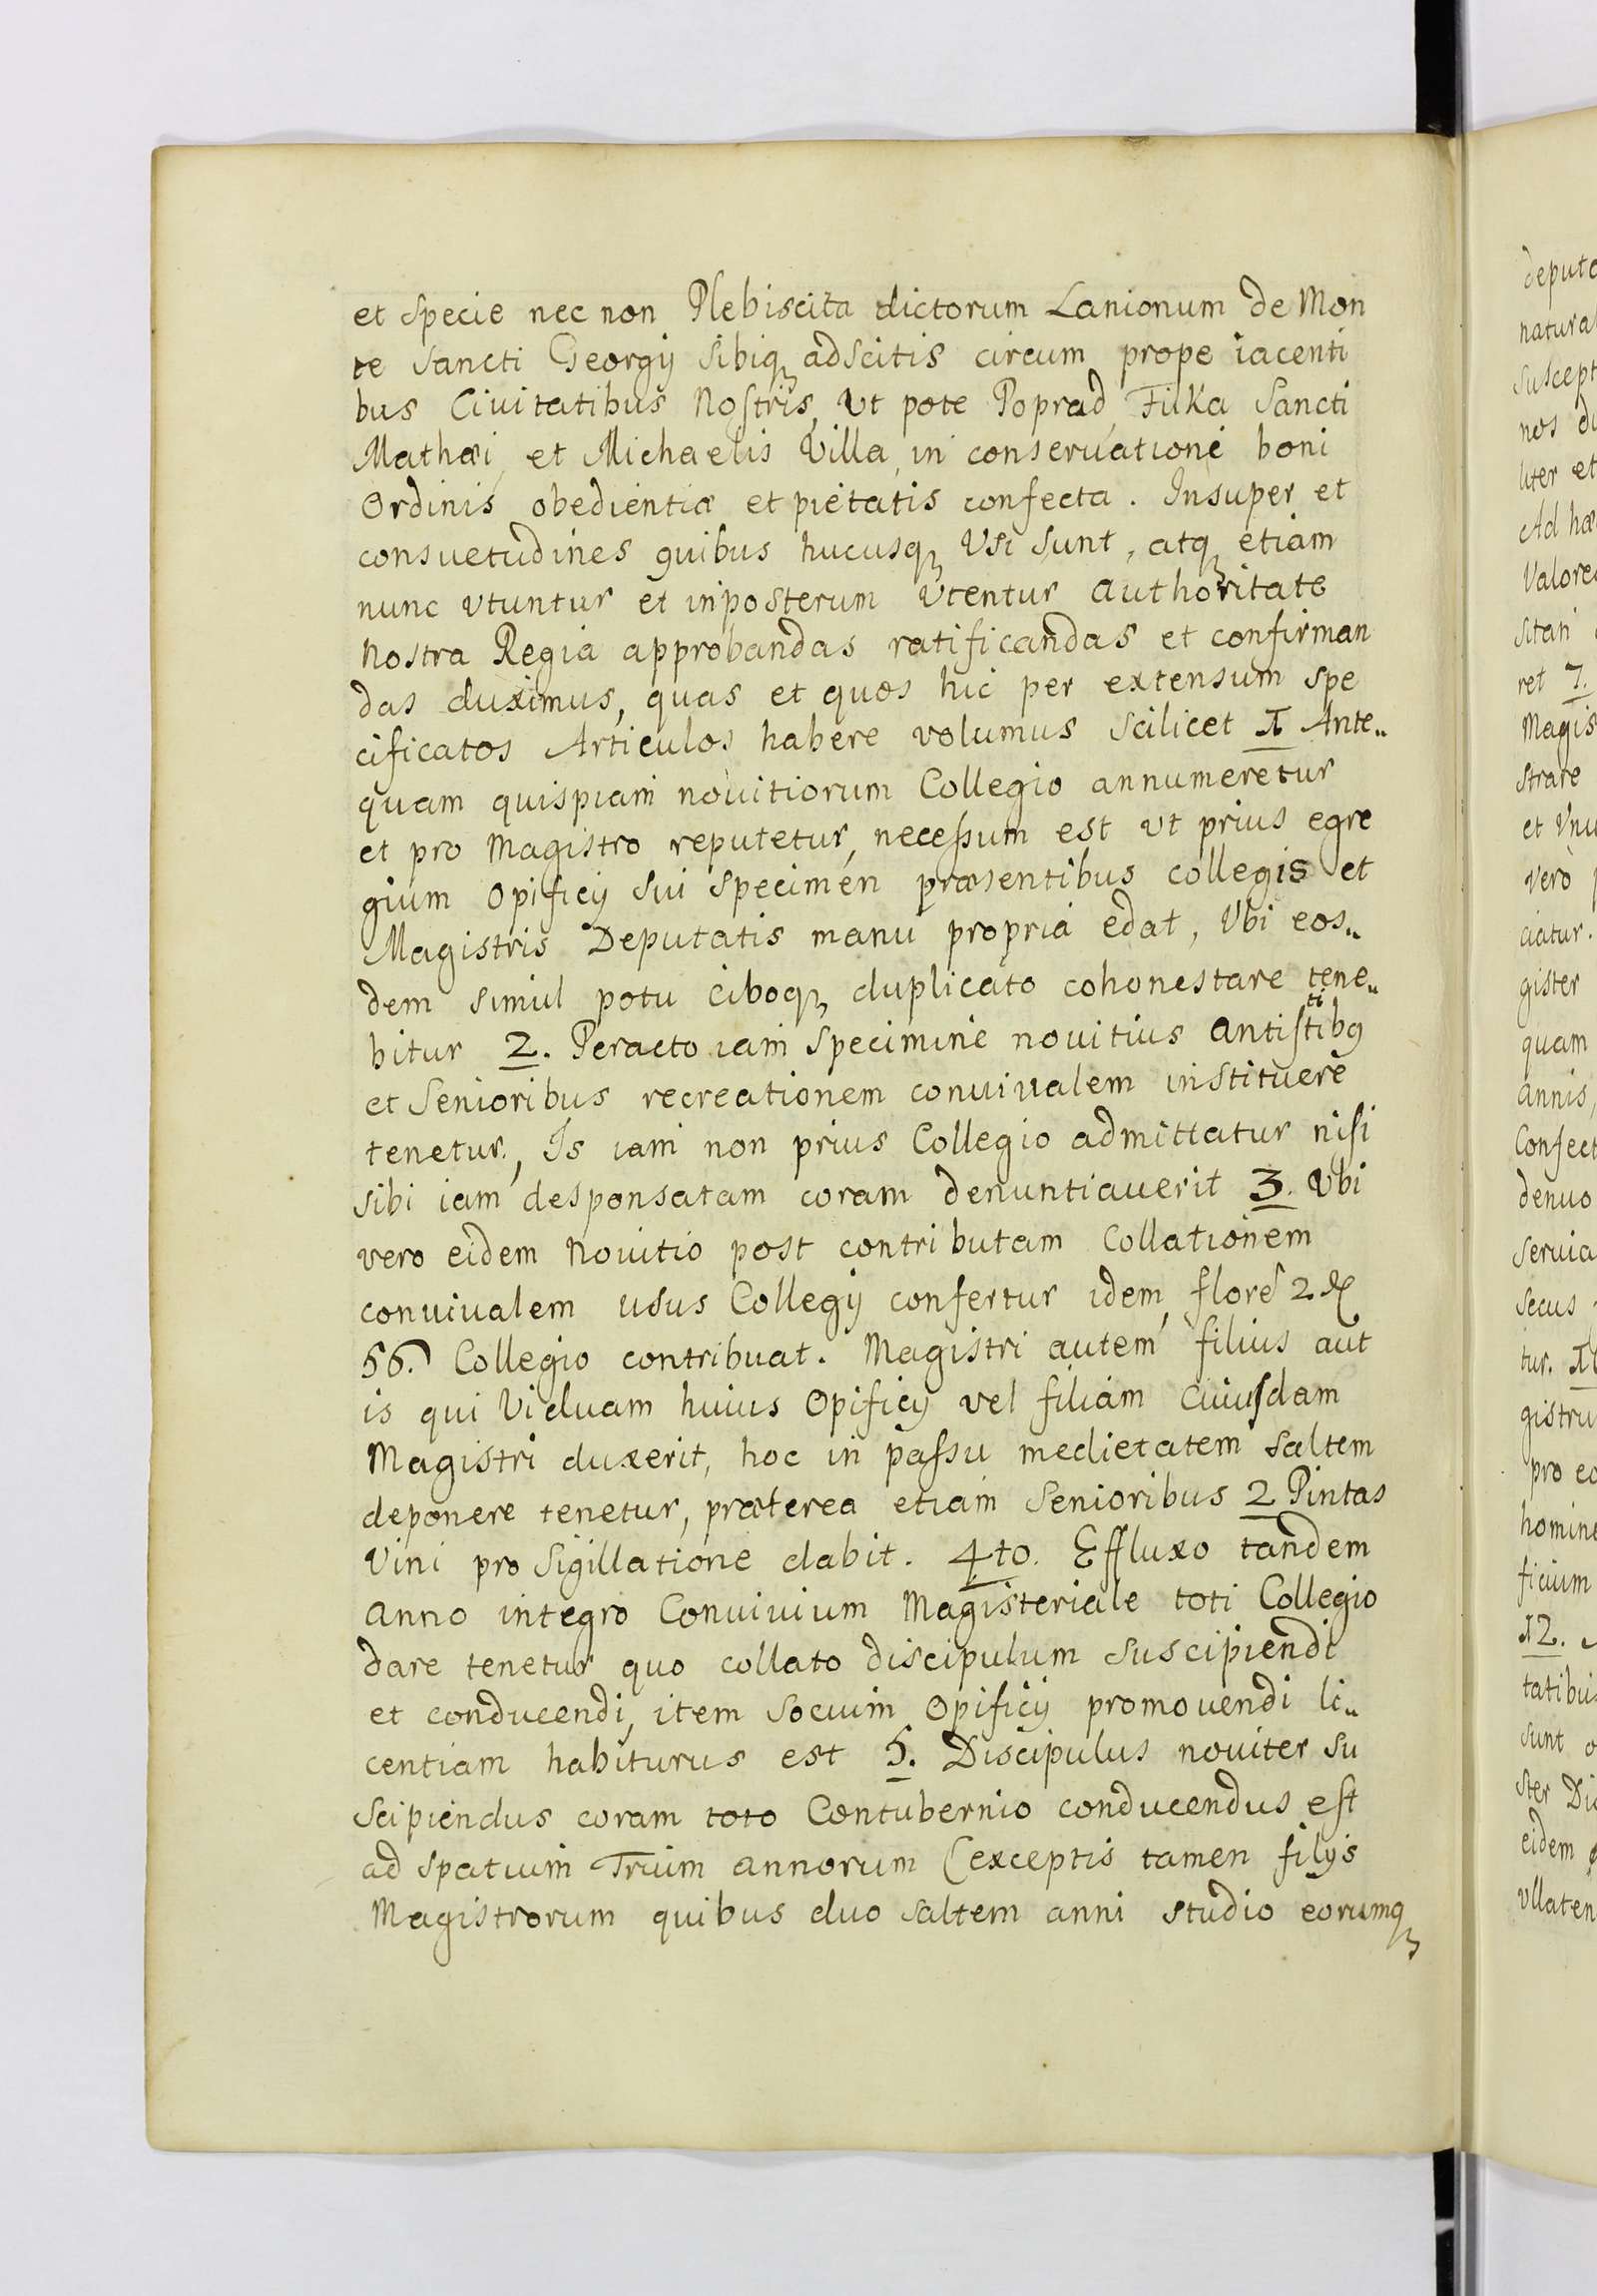 et specie nec non Plebiscita dictorum Lanionum de Mon
te Sancti Georgij sibiq, adscitis circum prope iacenti
bus Ciuitatibus Nostris, Vt pote Poprad, Filka Sancti
Mathæi, et Michaelis Villa, in conseruatione boni
Ordinis obedientiæ et pietatis confecta. Insuper et
consuetudines quibus hucusq, Vsi sunt, atq, etiam
nunc vtuntur et inposterum vtentur authoritate
nostra Regia approbandas ratificandas et confirman
das duximus, quas et quos hic per extensum spe
cificatos Articulos habere volumus scilicet 1 Ante„
quam quispiam nouitiorum Collegio annumeretur
et pro Magistro reputetur, necessum est vt prius egre
gium Opificij sui specimen præsentibus collegis et
Magistris Deputatis manu propria edat, Vbi eos„
dem simul potu ciboq, duplicato cohonestare tene„
bitur 2. Peracto iam specimine nouitius antistitibq
et Senioribus recreationem conuiualem instituere
tenetur, Is iam non prius Collegio admittatur nisi
sibi iam desponsatam coram denuntiauerit 3. Vbi
vero eidem Nouitio post contributam Collationem
conuiualem usus Collegij confertur idem, flore 2
56. Collegio contribuat. Magistri autem filius aut
is qui Viduam huius Opificij vel filiam cuiusdam
Magistri duxerit, hoc in passu medietatem saltem
deponere tenetur, præterea etiam Senioribus 2 Pintas
Vini pro Sigillatione dabit. 4to. Effluxo tandem
anno integro Conuiuium Magisteriale toti Collegio
dare tenetur quo collato discipulum suscipiendi
et conducendi, item socium Opificij promouendi li„
centiam habiturus est 5. Discipulus nouiter su
scipiendus coram toto Contubernio conducendus est
ad spatium Trium annorum (exceptis tamen filijs
Magistrorum quibus duo saltem anni studio eorumq,